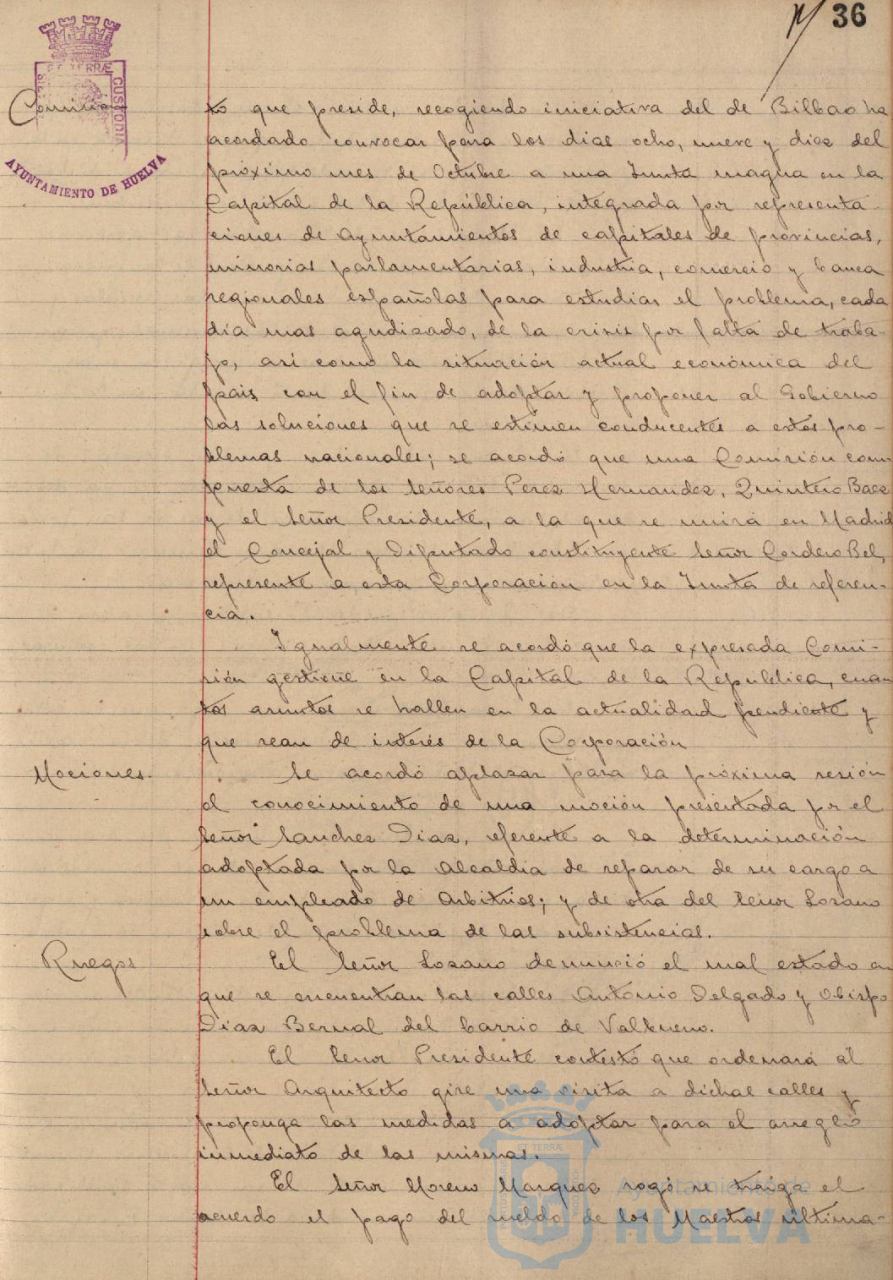 36
PORTUS MARIS ET TERRÆ CUSTODIA
AYUNTAMIENTO DE HUELVA
Comisión
to que preside, recogiendo iniciativa del de Bilbao ha
acordado convocar para los dias ocho, nueve y diez del
próximo mes de Octubre a una Junta magna en la
Capital de la República, integrada por representa-
ciones de Ayuntamientos de capitales de provincias,
minorias parlamentarias, industria, comercio y banca
regionales españolas para estudiar el problema, cada
dia mas agudizado, de la crisis por falta de traba-
jo, asi como la situación actual económica del
pais con el fin de adoptar y proponer al Gobierno
las soluciones que se estimen conducentes a estos pro-
blemas nacionales; se acordó que una Comisión com-
puesta de los Señores Perez Hernandez, Quintero Baez
y el Señor Presidente, a la que se unirá en Madrid
el Concejal y Diputado constituyente Señor Cordero Bel,
represente a esta Corporación en la Junta de referen-
cia.
Igualmente se acordó que la expresada Comi-
sión gestione en la Capital de la República, cuan-
tos asuntos se hallen en la actualidad pendiente y
que sean de interés de la Corporación
Mociones.
Se acordó aplazar para la próxima sesión
el conocimiento de una moción presentada por el
Señor Sanchez Diaz, referente a la determinación
adoptada por la Alcaldia de separar de su cargo a
un empleado de Arbitrios; y de otra del Señor Lozano
sobre el problema de las subsistencias.
Ruegos
El Señor Lozano denunció el mal estado en
que se encuentran las calles Antonio Delgado y Obispo
Diaz Bernal del barrio de Valbueno.
El Señor Presidente contestó que ordenará al
Señor Arquitecto gire una visita a dichas calles y
proponga las medidas a adoptar para el arreglo
inmediato de las mismas.
El Señor Moreno Marquez rogó se traiga el
acuerdo el pago del sueldo de los Maestros última-
Ayuntamiento de
HUELVA